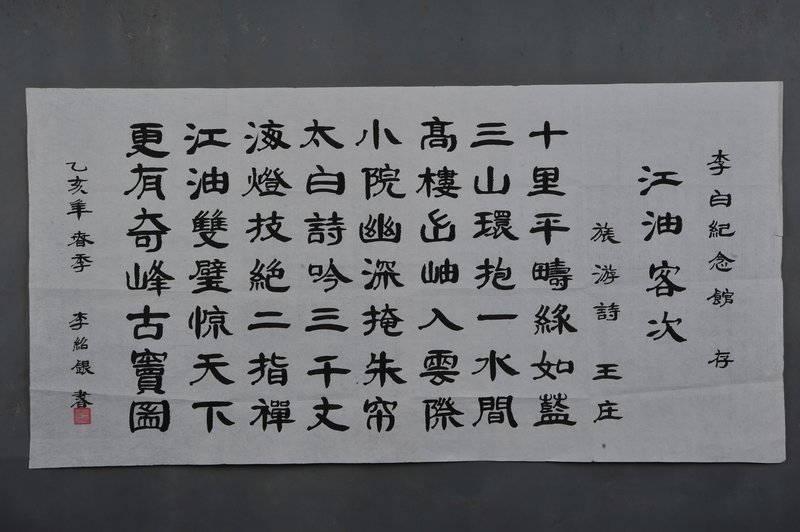 李白紀念館 存
江油客次
旅游詩 王庄
十里平疇緑如藍
三山環抱一水間
髙樓出岫入雲際
小院幽深掩朱帘
太白詩吟三千丈
海燈技絶二指禪
江油雙璧惊天下
更有奇峰古竇圌
乙亥年 春季 李紹銀 書